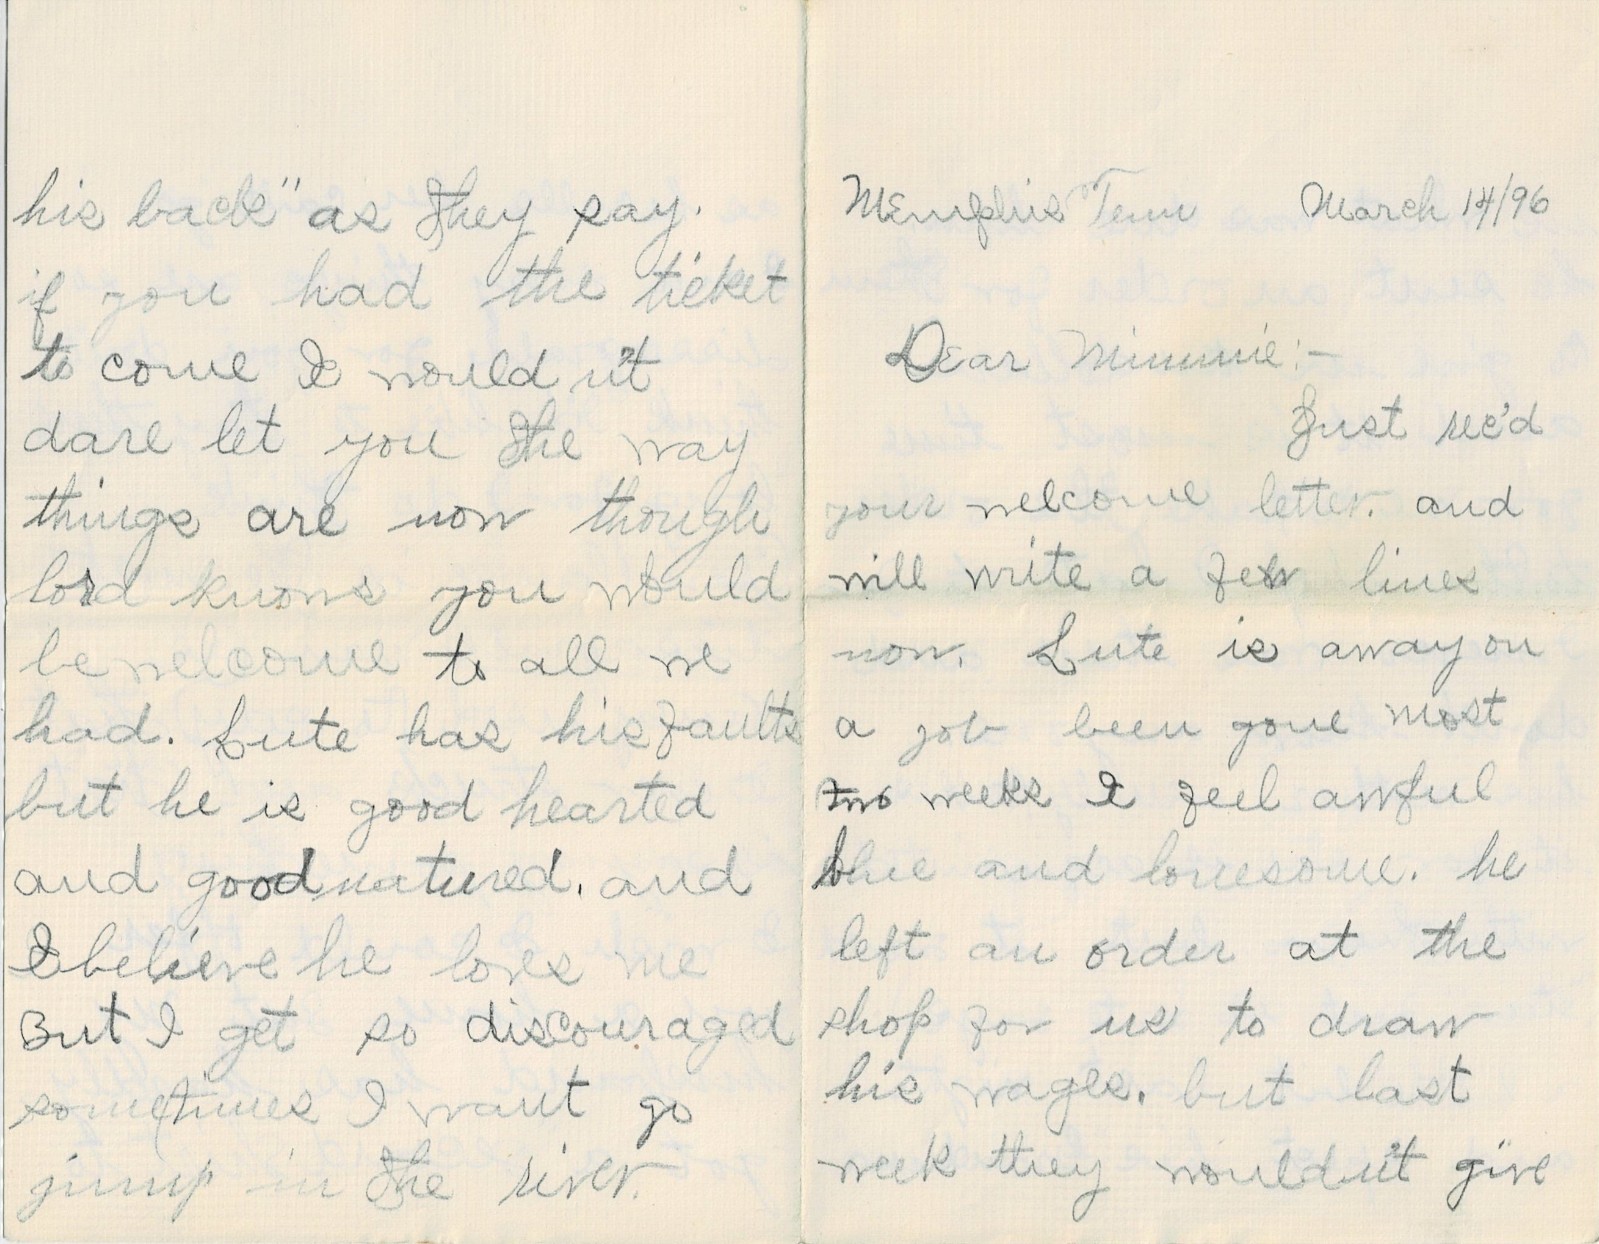 Memphis Tenn March 14/96
Dear Minnie:-
Just rec'd
your welcome letter. and
will write a few lines
now. Lute is away on
a job been gone most
two weeks I feel awful
blue and lonesome. he
left an order at the
shop for us to draw
his wages. but last
week they wouldn't give
his back" as they say.
if you had the ticket
to come I would n't
dare let you the way
things are now though
lord knows you would
be welcome to all we
had. Lute has his faults
but he is good hearted
and good natured. and
I believe he loves me
But I get so discouraged
sometimes I want go
jump in the river.